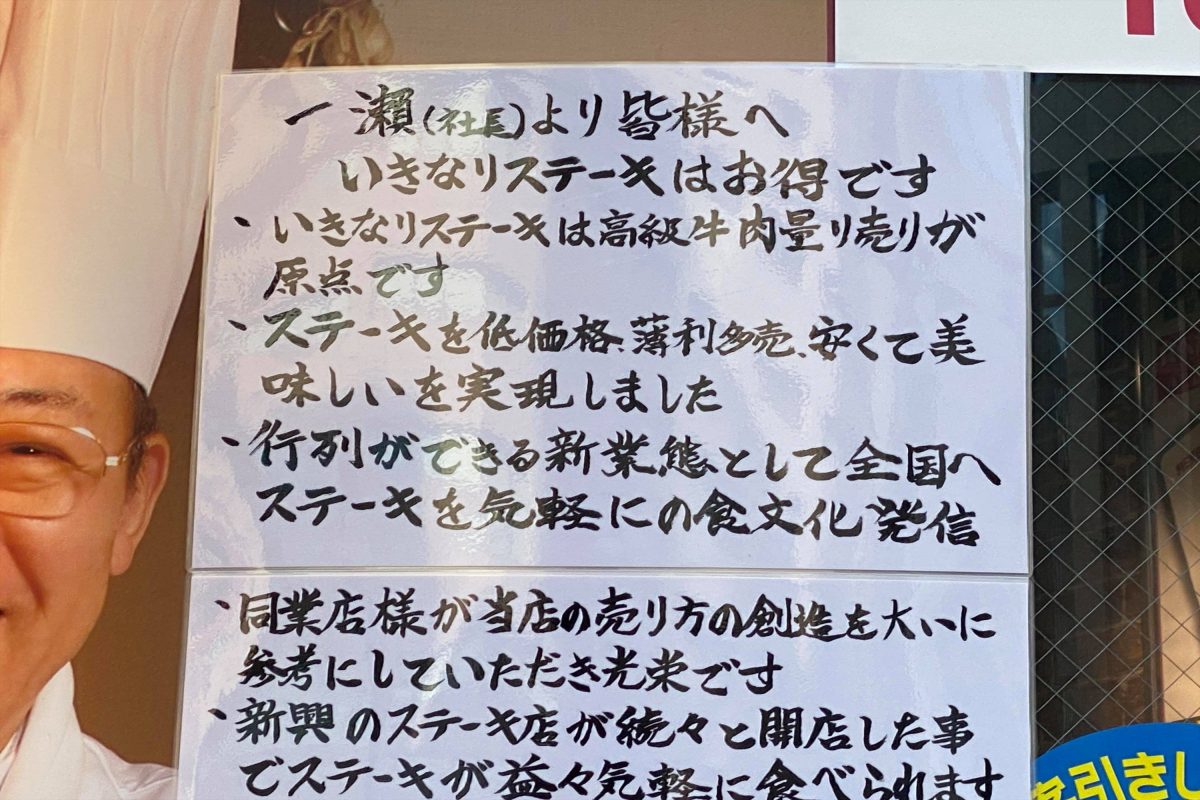 一瀬(社長)より皆様へ
いきなりステーキはお得です
、いきなりステーキは高級牛肉量り売りが
原点です
、ステーキを低価格、薄利多売、安くて美
味しいを実現しました
、行列ができる新業態として全国へ
ステーキを気軽にの食文化発信
、同業店様が当店の売り方の創造を大いに
参考にしていただき光栄です
、新興のステーキ店が続々と開店した事
でステーキが益々気軽に食べられます
引きし